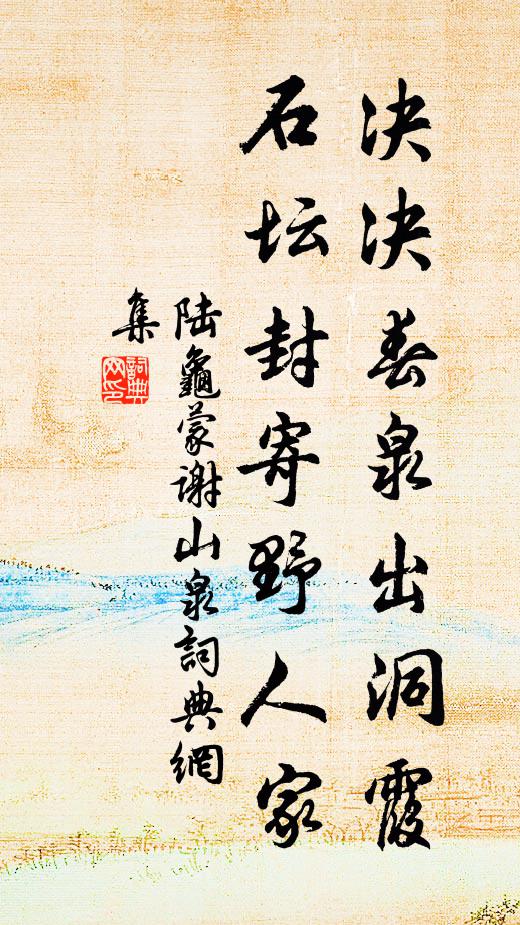 决决春泉出洞霞
石坛封寄野人家
陆龜蒙谢山泉詞典網
集
詞典網印